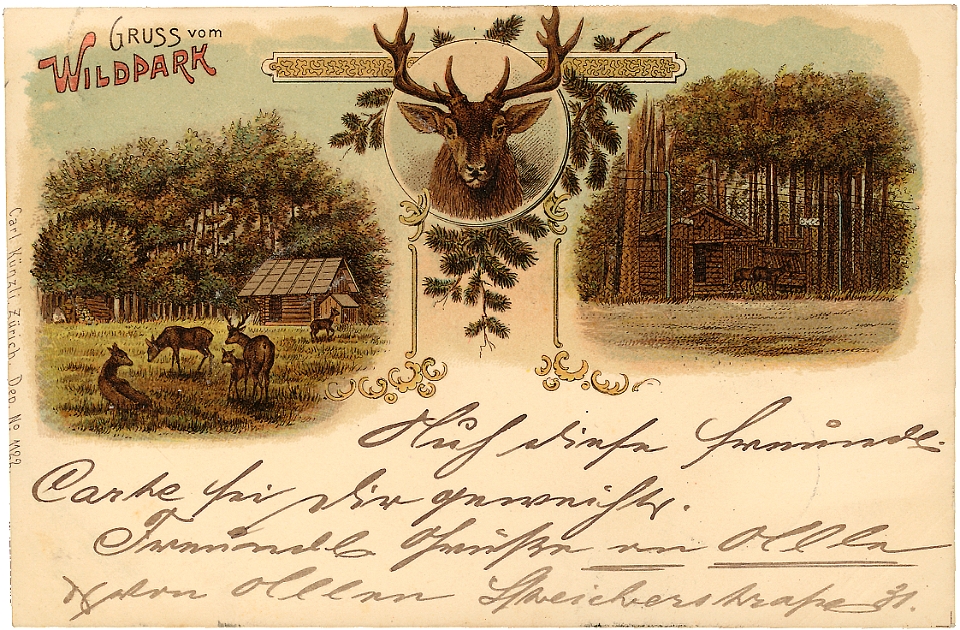 GRUSS vom
WILDPARK
Carl Künzli, Zürich. Dep. No 1122
Auch diese freundl.
Carte sei Dir geweiht.
Freundl. Grüße an Alle
von Allen